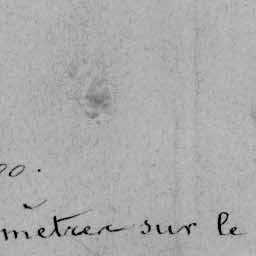 00.
mètres sur le